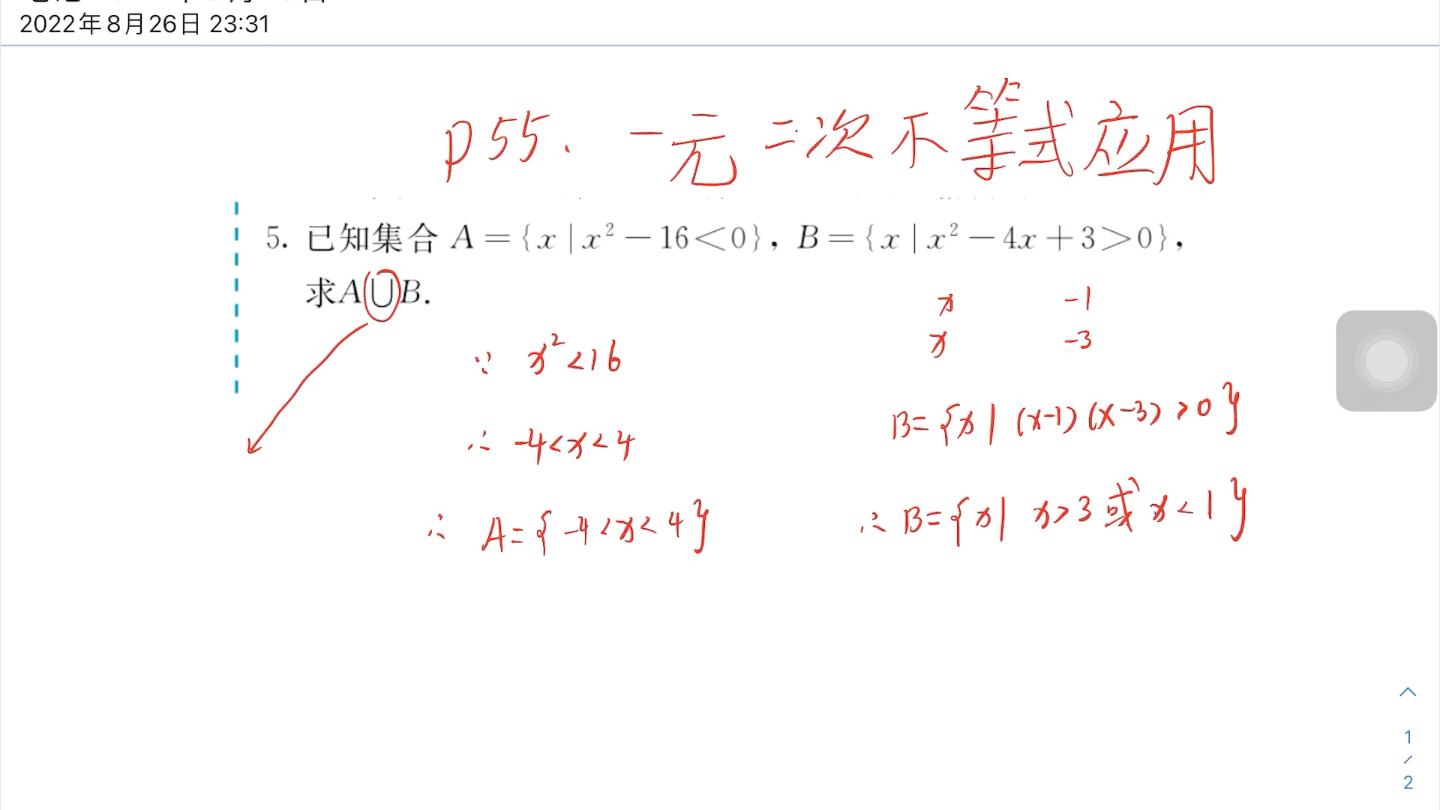 2022年8月26日 23:31
P55. 一元二次不等式应用
5. 已知集合 A={x|x²-16<0}, B={x|x²-4x+3>0},
求A∪B.
x -1
x -3
∵ x²<16
B={x| (x-1)(x-3)>0}
∴ -4<x<4
∴ A={-4<x<4}
∴ B={x| x>3 或 x<1}
1
/
2